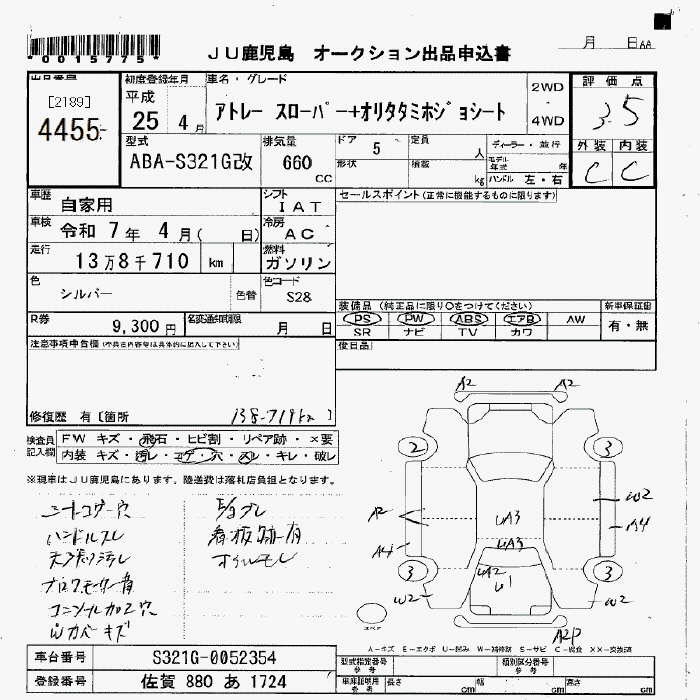 *0015775*
月 日 AA
JU鹿児島 オークション出品申込書
出品番号
[2189]
4455
初度登録年月
平成
25 4月
車名・グレード
アトレー スローパー+オリタタミホジョシート
2WD
4WD
評価点
3.5
外装 内装
C C
型式
ABA-S321G改
排気量
660
CC
ドア 5
形状
定員 人
積載 kg
ディーラー・並行
モデル年式 年
ハンドル 左・右
車歴 自家用
シフト IAT
車検 令和 7年 4月( 日)
冷房 AC
走行 13万8千710 km
燃料 ガソリン
色 シルバー 色替
色コード S28
R券 9,300円
名変通知期限 月 日
セールスポイント(正常に機能するものに限ります)
装備品(純正品に限り○をつけてください)
PS PW ABS エアB AW
SR ナビ TV カワ
新車保証書
有・無
後日品
注意事項申告欄(不具合内容等は具体的に記入して下さい)
修復歴 有〔箇所 138-719km 〕
検査員記入欄
FW キズ・飛石・ヒビ割・リペア跡・×要
内装 キズ・汚レ・コゲ・穴・スレ・キレ・破レ
※現車はJU鹿児島にあります。陸送費は落札店負担となります。
シートコゲ穴
ハンドルスレ
天張リ汚レ
コンソール加工穴
Wカバーキズ
看板跡有
オイルモレ
A2 A2
2 3
A2 W2
UA3 A4
A4 UA3
3 UA2 3
U1
W2 W2
A2P
スペア
A-キズ E-エクボ U-凹み W-補修跡 S-サビ C-腐食 XX-交換済
車台番号 S321G-0052354
登録番号 佐賀 880 あ 1724
型式指定番号
参考
類別区分番号
参考
車庫証明用
参考
長さ cm 幅 cm 高さ cm